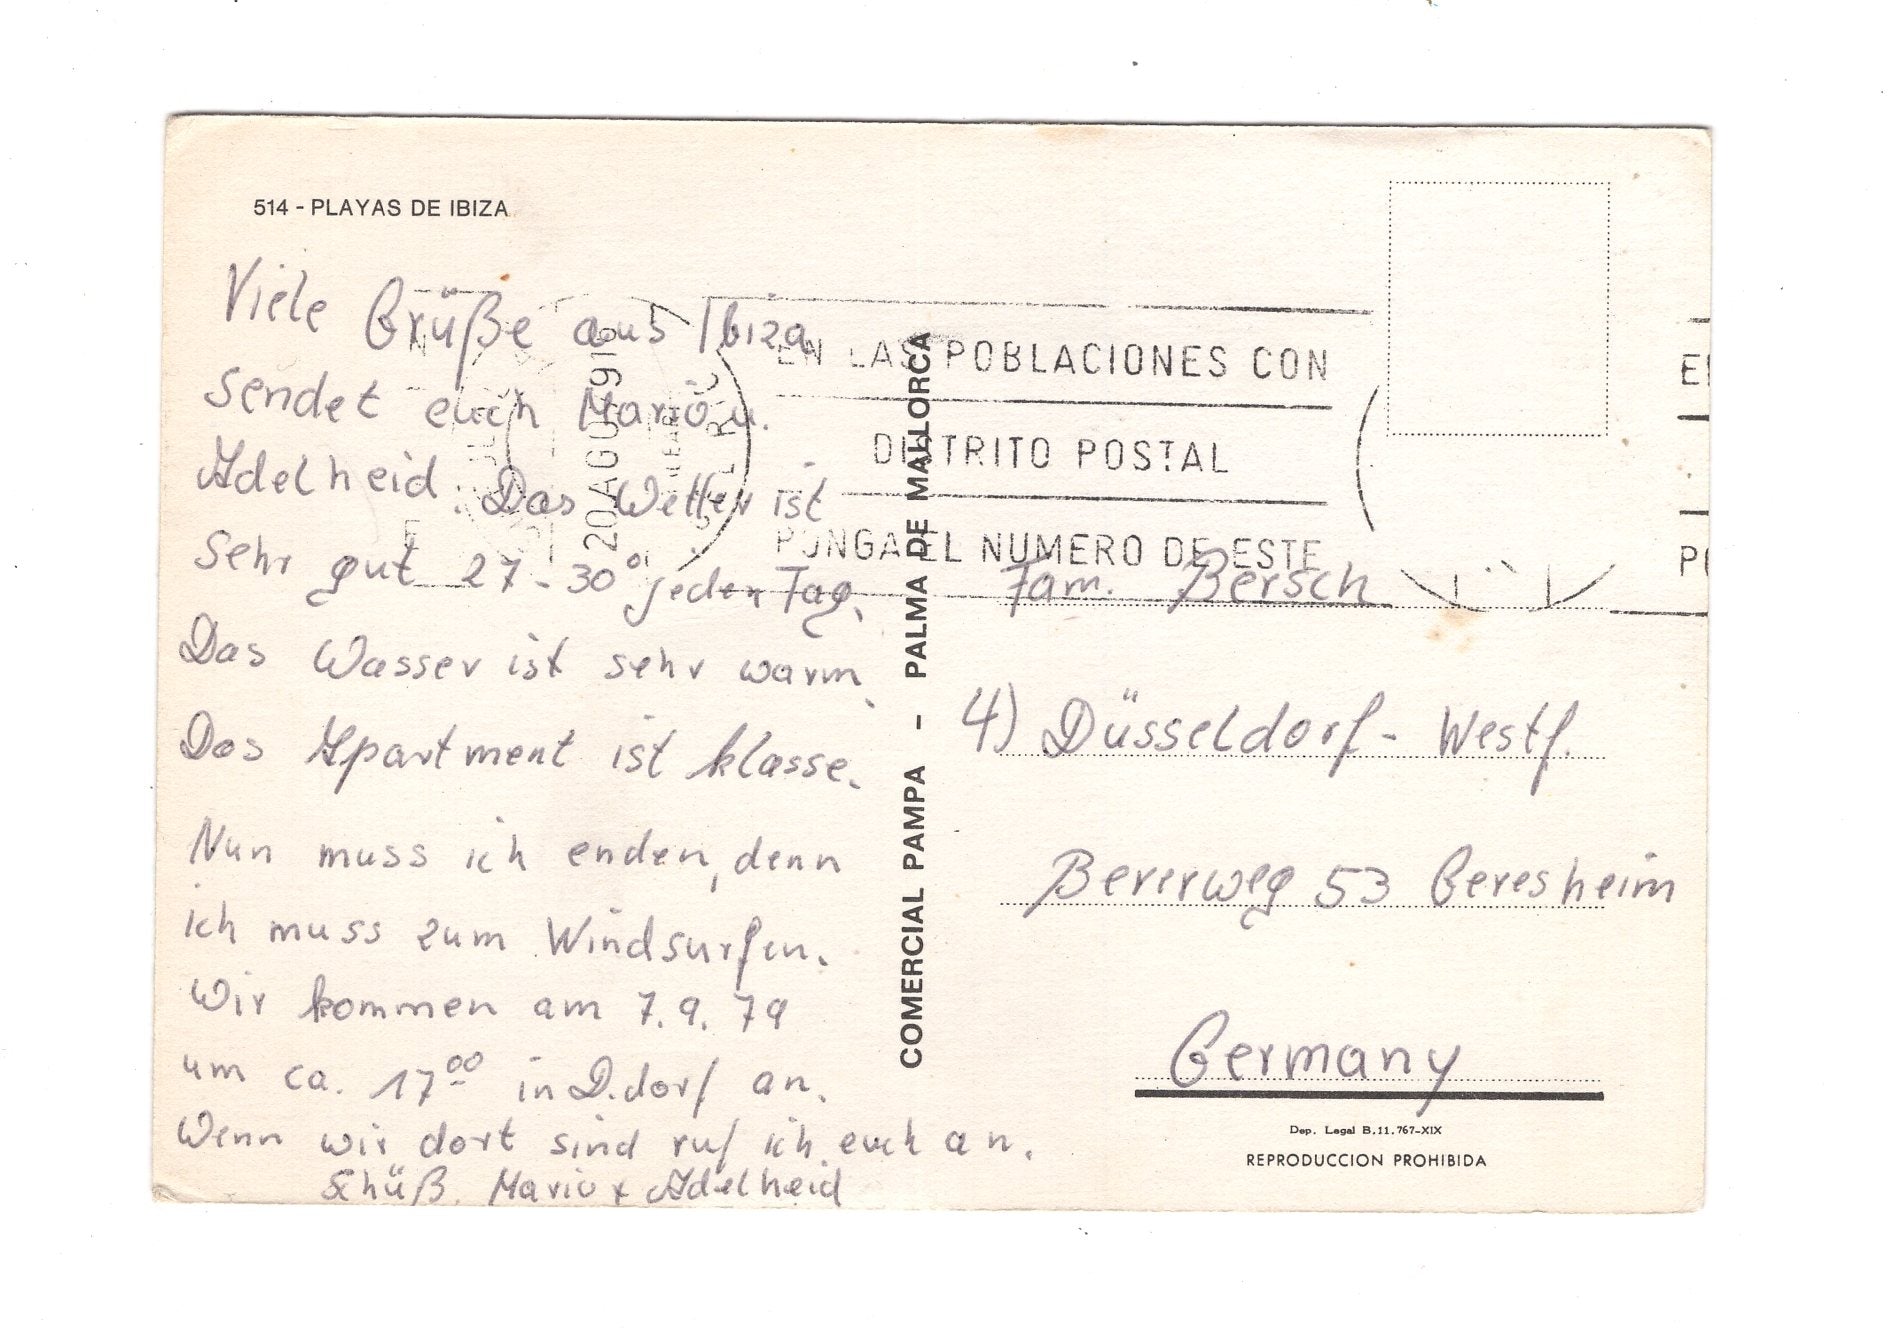 514 - PLAYAS DE IBIZA
Viele Grüße aus Ibiza
sendet euch Mario u.
Adelheid. Das Wetter ist
sehr gut 27-30° jeden Tag.
Das Wasser ist sehr warm.
Das Apartment ist klasse.
Nun muss ich enden, denn
ich muss zum Windsurfen.
Wir kommen am 7.9.79
um ca. 17⁰⁰ in D.dorf an.
Wenn wir dort sind ruf ich euch an.
Schüß. Mario x Adelheid
20 AGO 79 16
EN LAS POBLACIONES CON
DISTRITO POSTAL
PONGA EL NUMERO DE ESTE
COMERCIAL PAMPA - PALMA DE MALLORCA
Fam. Bersch
4) Düsseldorf - Westf.
Bererweg 53 Geresheim
Germany
Dep. Legal B.11.767-XIX
REPRODUCCION PROHIBIDA